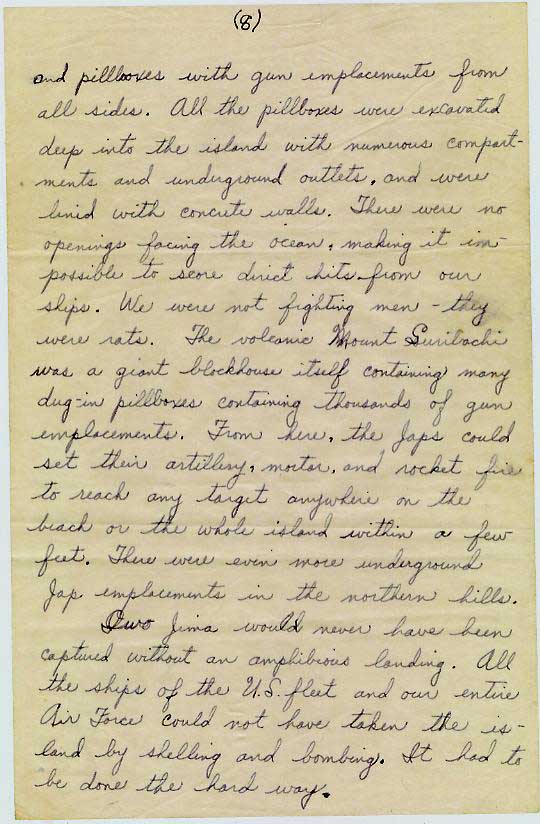 (8)
and pillboxes with gun emplacements from
all sides. All the pillboxes were excavated
deep into the island with numerous compart-
ments and underground outlets, and were
lined with concrete walls. There were no
openings facing the ocean, making it im-
possible to score direct hits from our
ships. We were not fighting men - they
were rats. The volcanic Mount Suribachi
was a giant blockhouse itself containing many
dug-in pillboxes containing thousands of gun
emplacements. From here, the Japs could
set their artillery, mortar, and rocket fire
to reach any target anywhere on the
beach or the whole island within a few
feet. There were even more underground
Jap emplacements in the northern hills.
Iwo Jima would never have been
captured without an amphibious landing. All
the ships of the U.S. fleet and our entire
Air Force could not have taken the is-
land by shelling and bombing. It had to
be done the hard way.